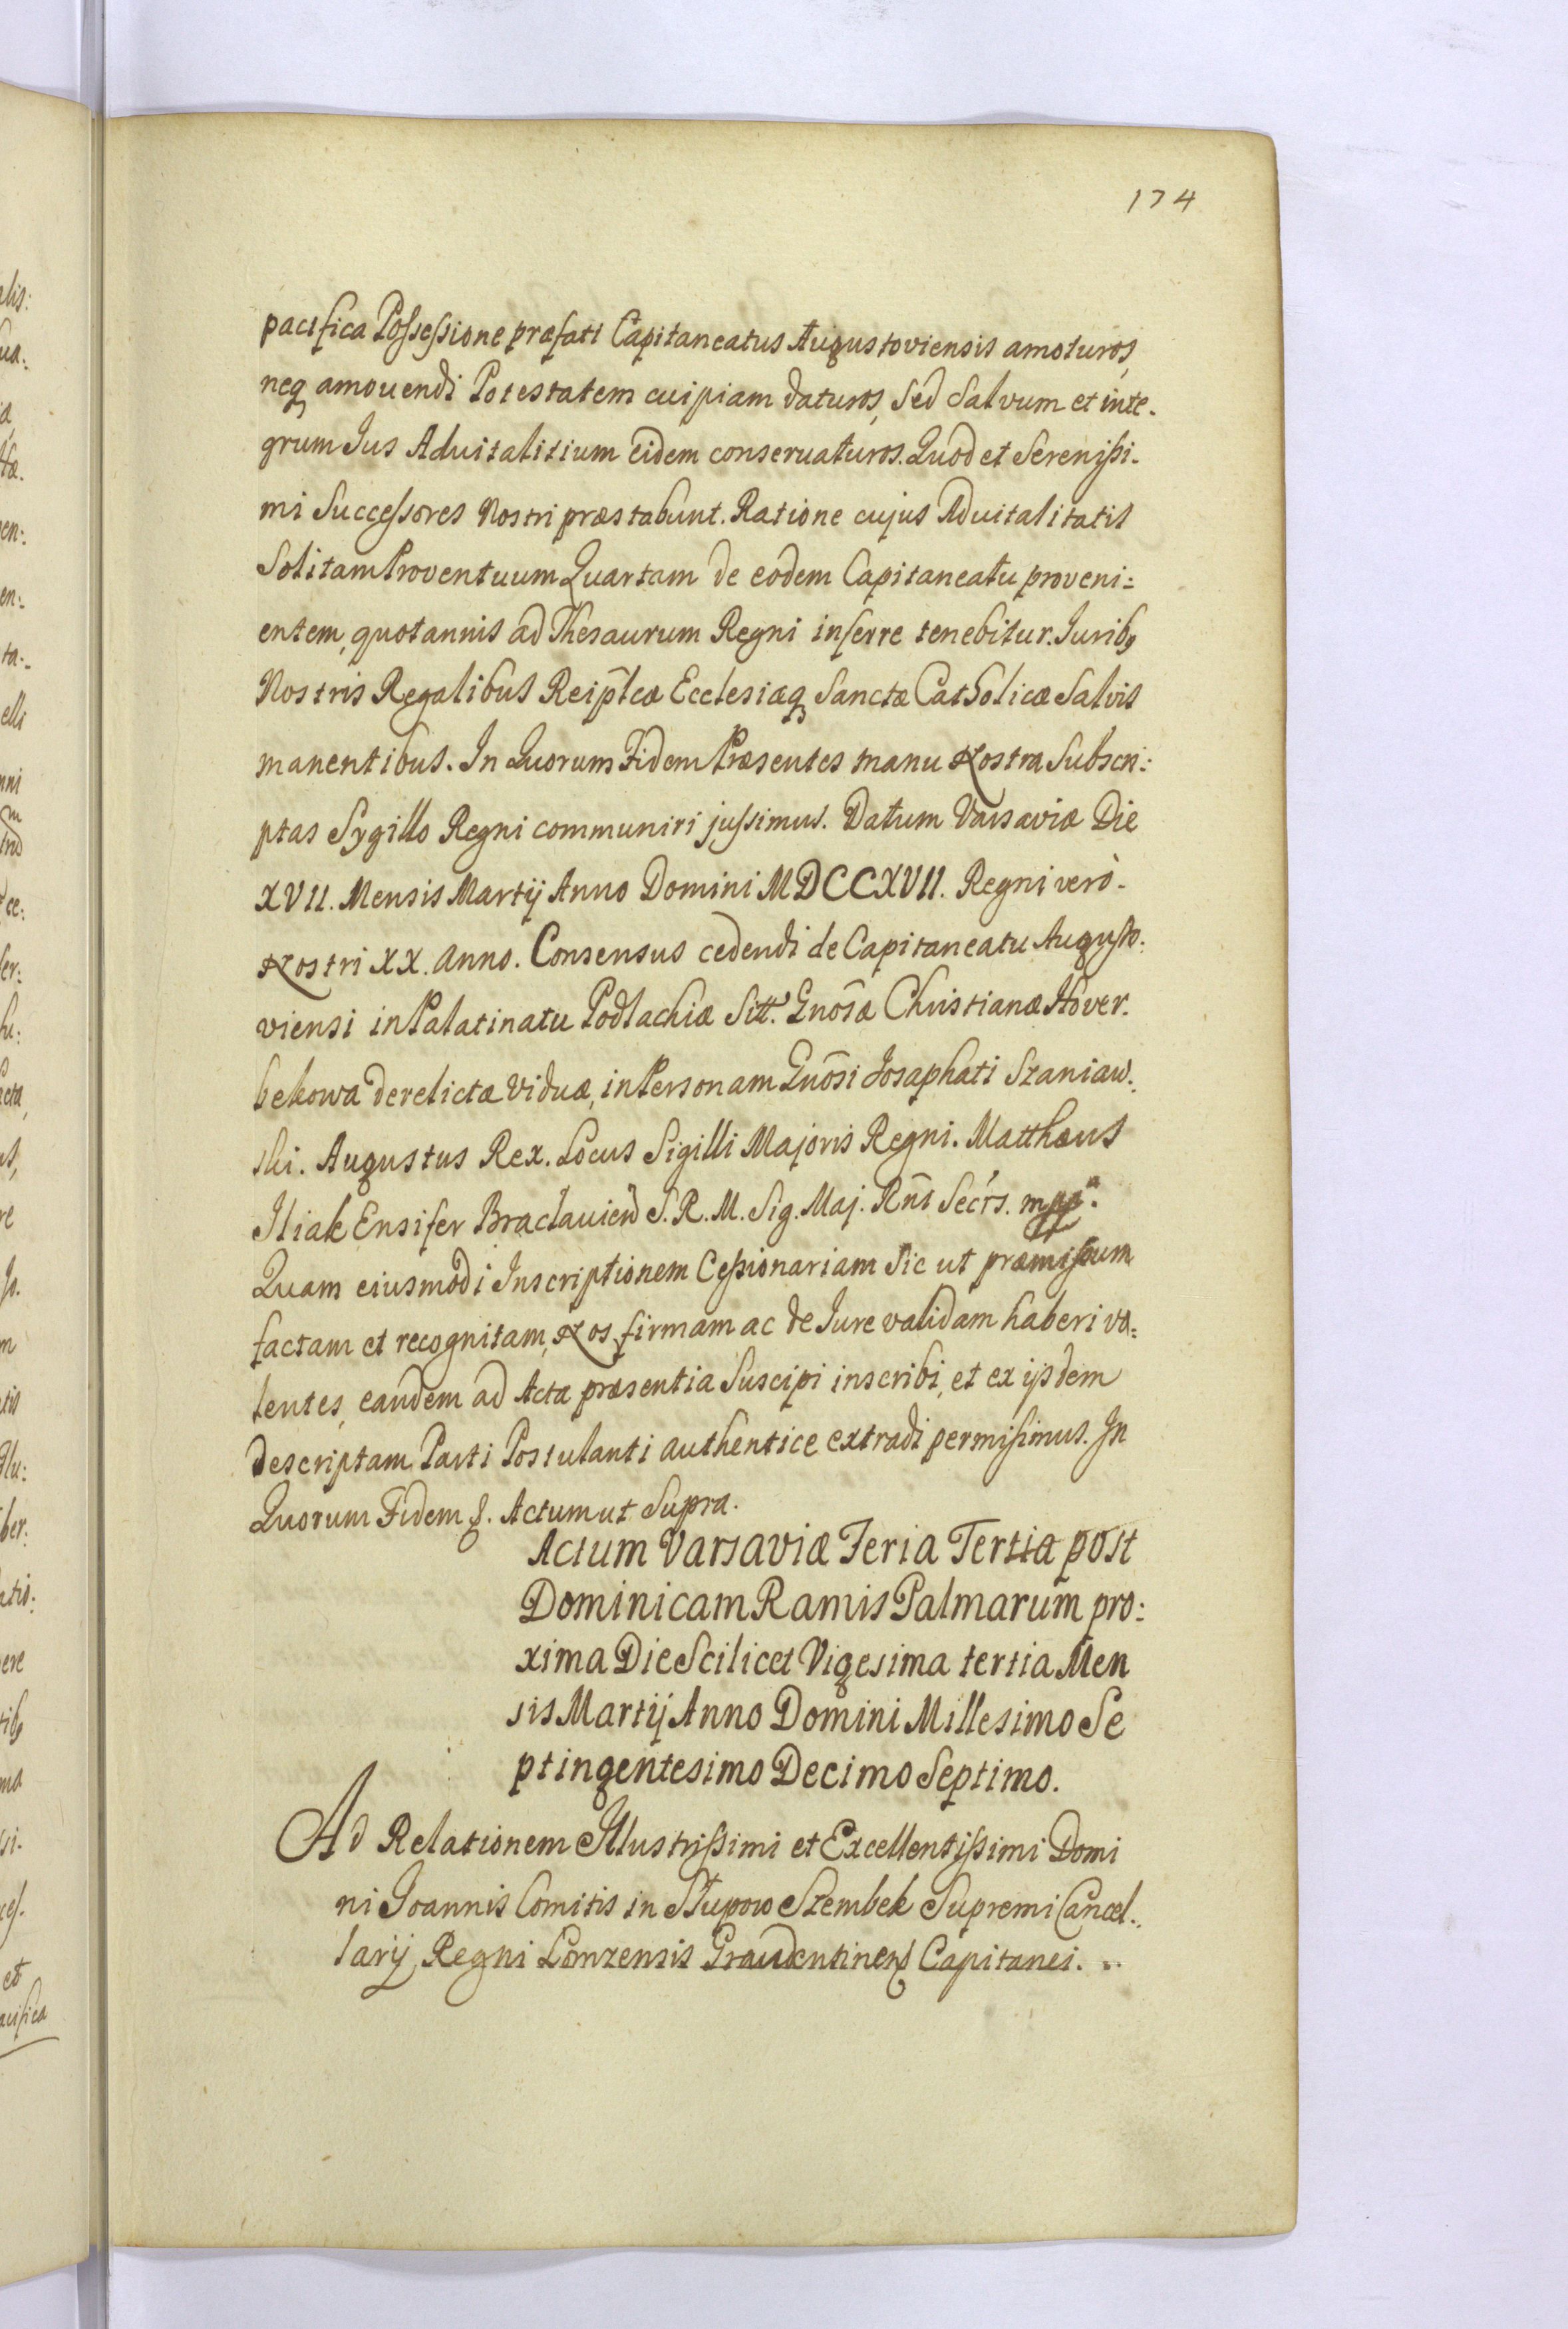 174
pacifica Possessione præfati Capitaneatus Augustoviensis amoturos,
neq amovendi Potestatem cuipiam daturos, sed salvum et inte-
grum Jus Advitalitium eidem conservaturos. Quod et Serenissi-
mi Successores Nostri præstabunt. Ratione cujus Advitalitatis
Solitam Proventuum Quartam de eodem Capitaneatu proveni:
entem, quotannis ad Thesaurum Regni inferre tenebitur. Juribꝫ
Nostris Regalibus Reiplcæ Ecclesiæq Sanctæ Catholicæ Salvis
manentibus. In Quorum Fidem Præsentes manu Nostra Subscri:
ptas Sygillo Regni communiri jussimus. Datum Varsaviæ Die
XVII. Mensis Martij Anno Domini MDCCXVII. Regni verò
Nostri XX. anno. Consensus cedendi de Capitaneatu Augusto:
viensi in Palatinatu Podlachiæ Sitt. Gnosæ Christianæ Hover.
bekowa derelictæ Viduæ, in Personam Gnosi Josaphati Szaniaw:
ski. Augustus Rex. Locus Sigilli Majoris Regni. Matthæus
Iliak Ensifer Braclavien S. R. M. Sig. Maj. Rni Secrs. mpp.
Quam eiusmodi Inscriptionem Cessionariam sic ut præmissum
factam et recognitam, Nos firmam ac de Jure validam haberi vo:
lentes, eandem ad Acta præsentia Suscipi inscribi, et ex ijsdem
descriptam Parti Postulanti authentice extradi permisimus. In
Quorum Fidem &. Actum ut Supra.
Actum Varsaviæ Feria Tertia post
Dominicam Ramis Palmarum pro:
xima Die Scilicet Vigesima tertia Men
sis Martij Anno Domini Millesimo Se
ptingentesimo Decimo Septimo.
Ad Relationem Illustrissimi et Excellentissimi Domi
ni Joannis Comitis in Słupow Szembek Supremi Cancel:
larij Regni Lomzensis Graudentinens Capitanei.